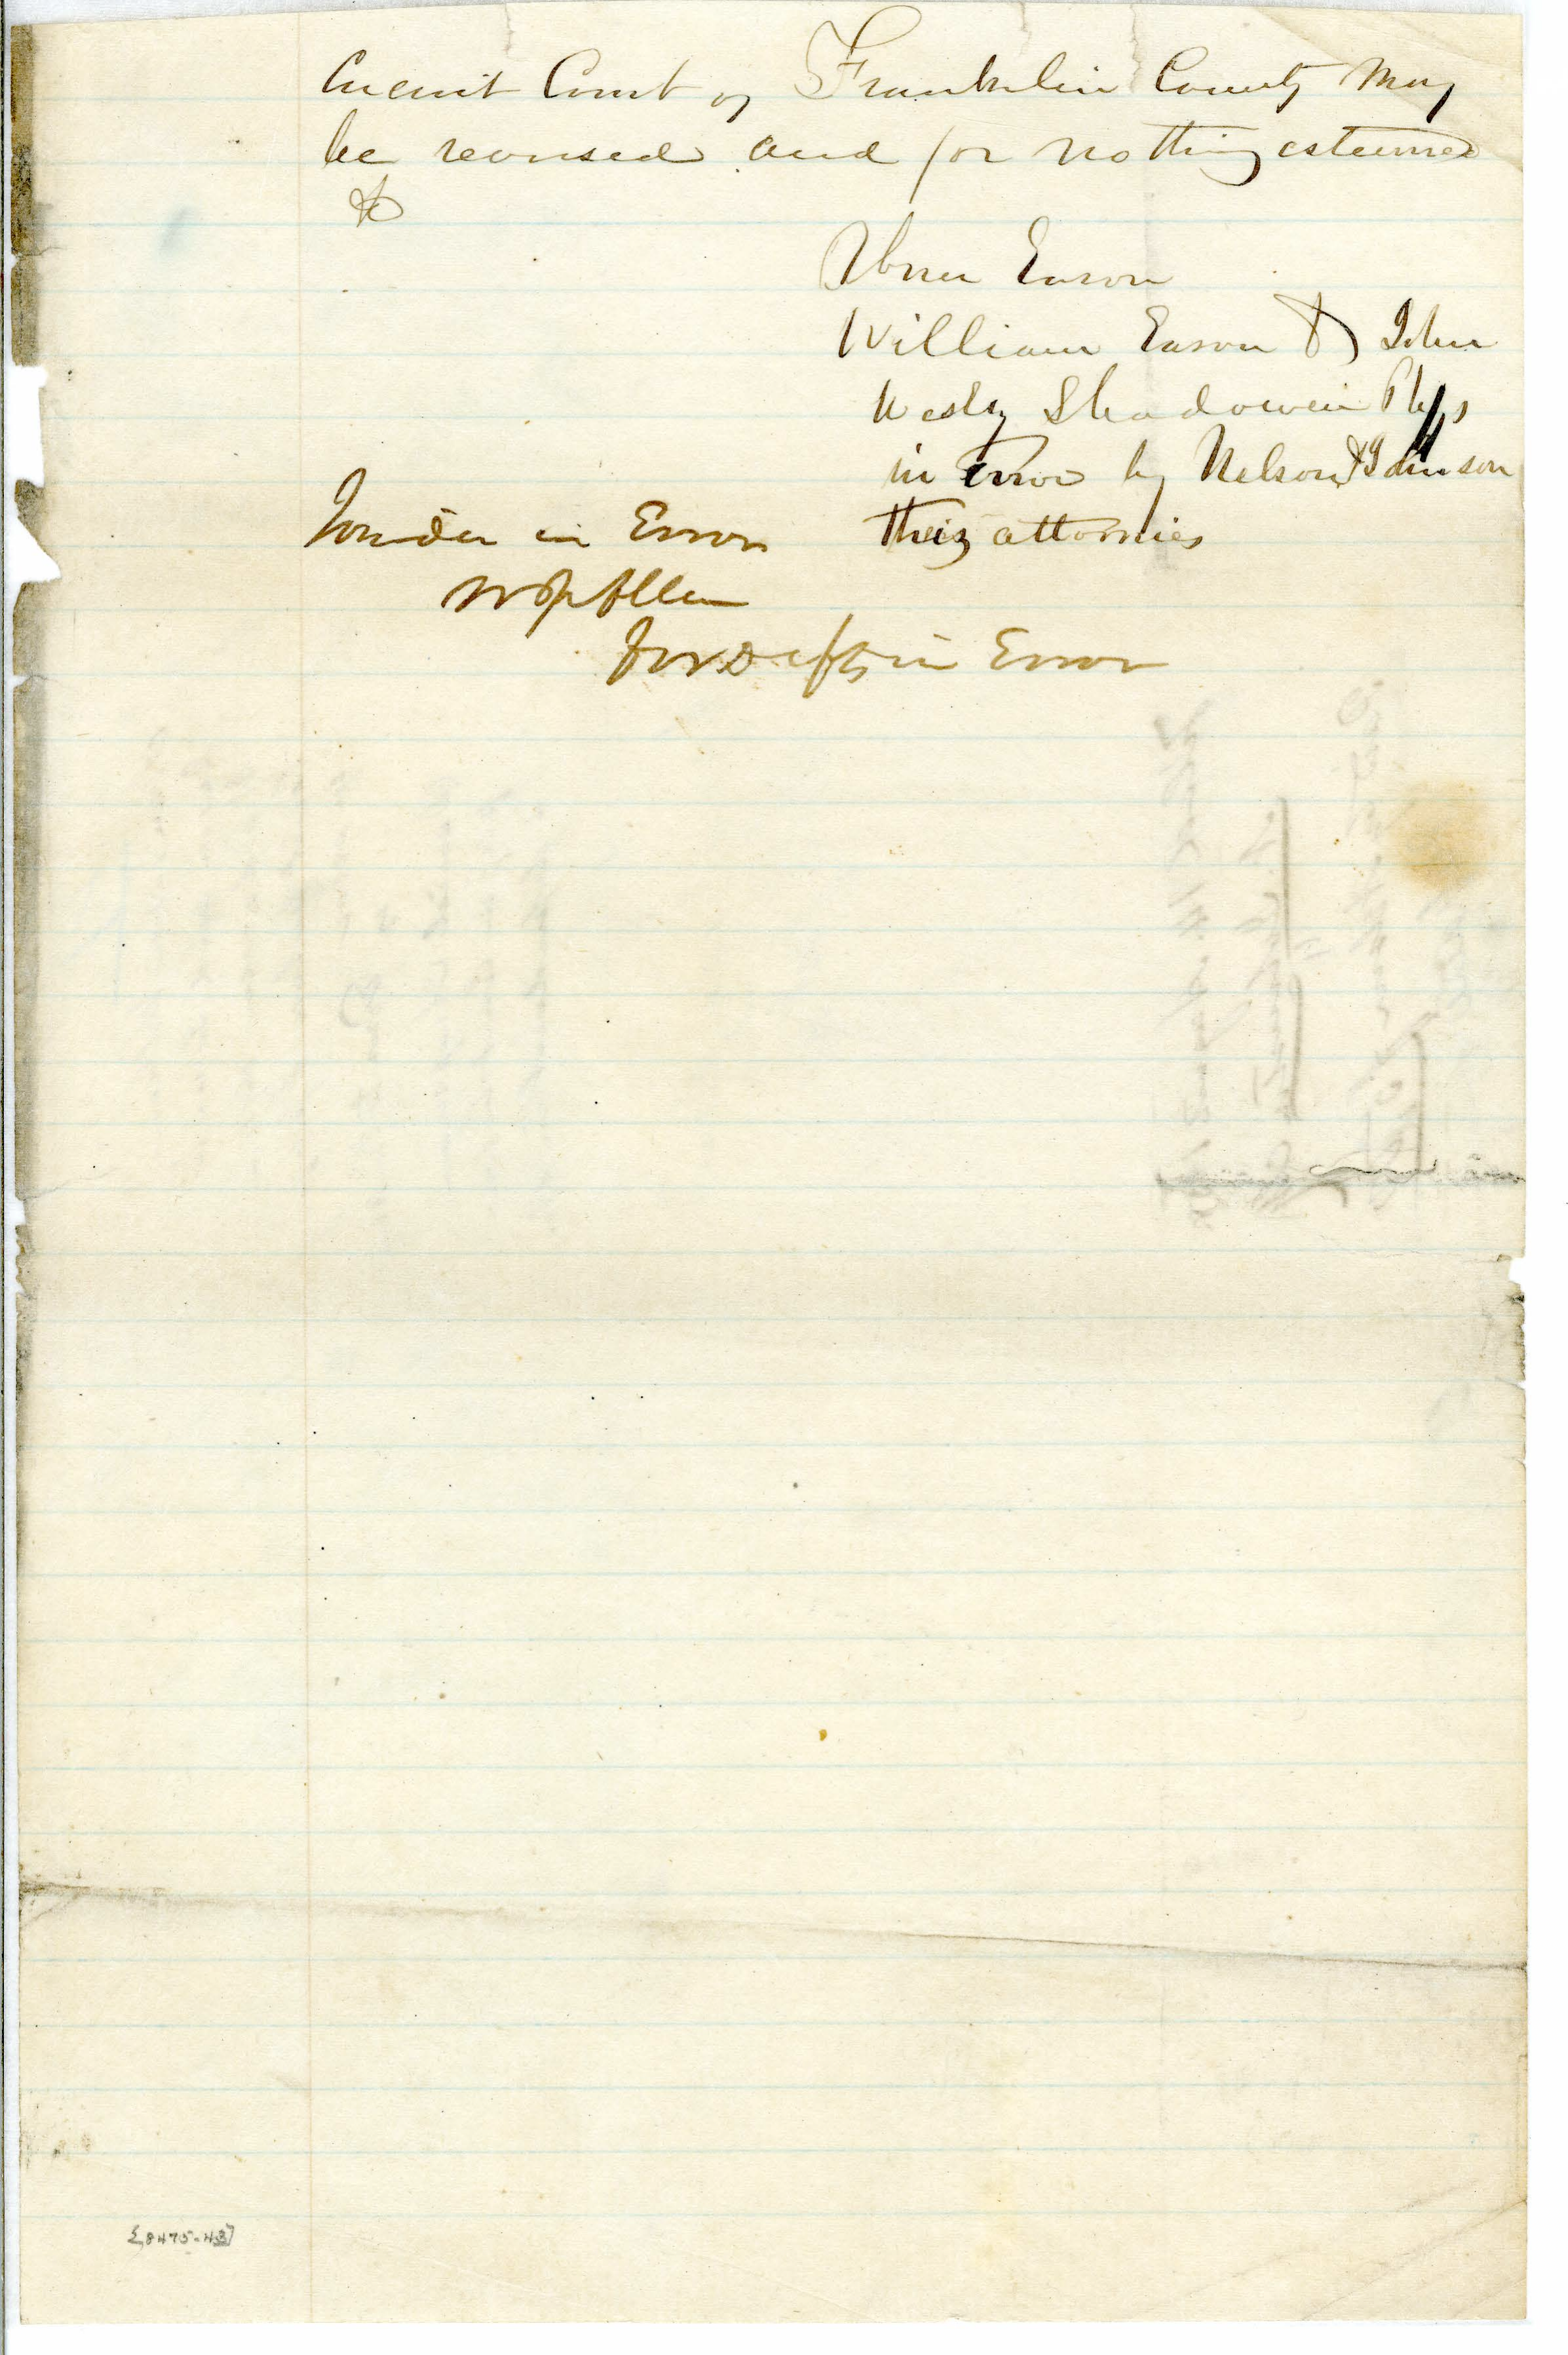 Circuit Court of Franklin County May
be reversed and for nothing esteemed
&c
Abner Eason
William Eason & John
Wesley Shadowen Plffs
in Error by Nelson & Johnson
their attornies
Joinder in Error
W J Allen
for Defts in Error
[8475-43]